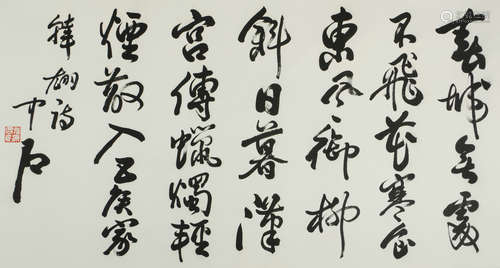 春城無處
不飛花寒食
東風御柳
斜日暮漢
宮傳蠟燭輕
煙散入五侯家
韓翃詩
中石